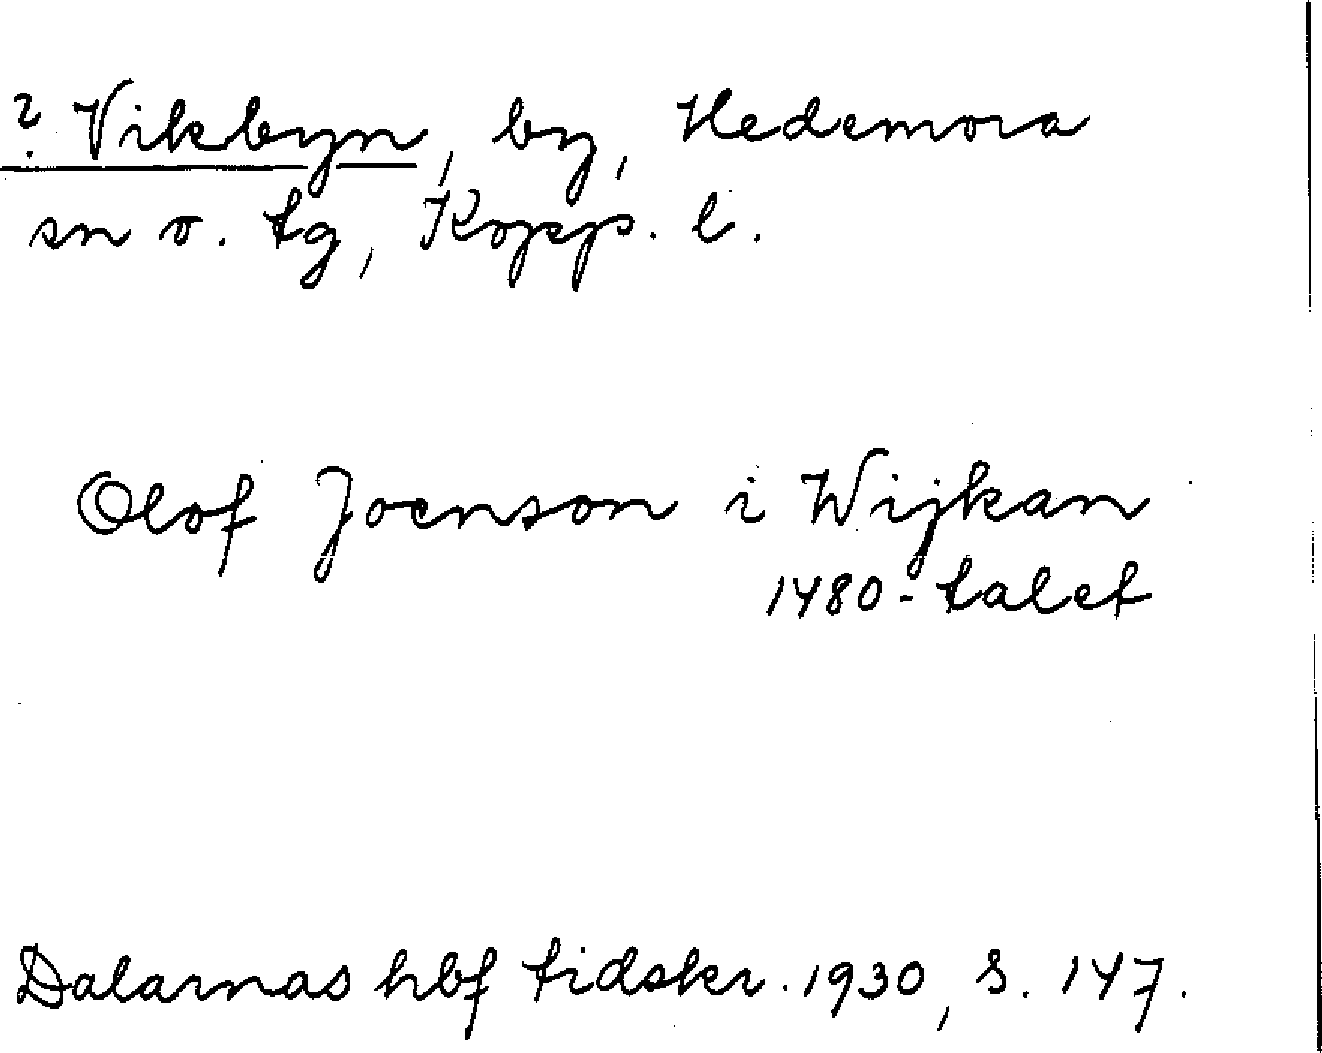 ? Vikbyn, by, Hedemora
sn o. tg, Kopp. l.
Olof Joenson i Wijkan
1480-talet
Dalarnas hbf tidskr. 1930, s. 147.